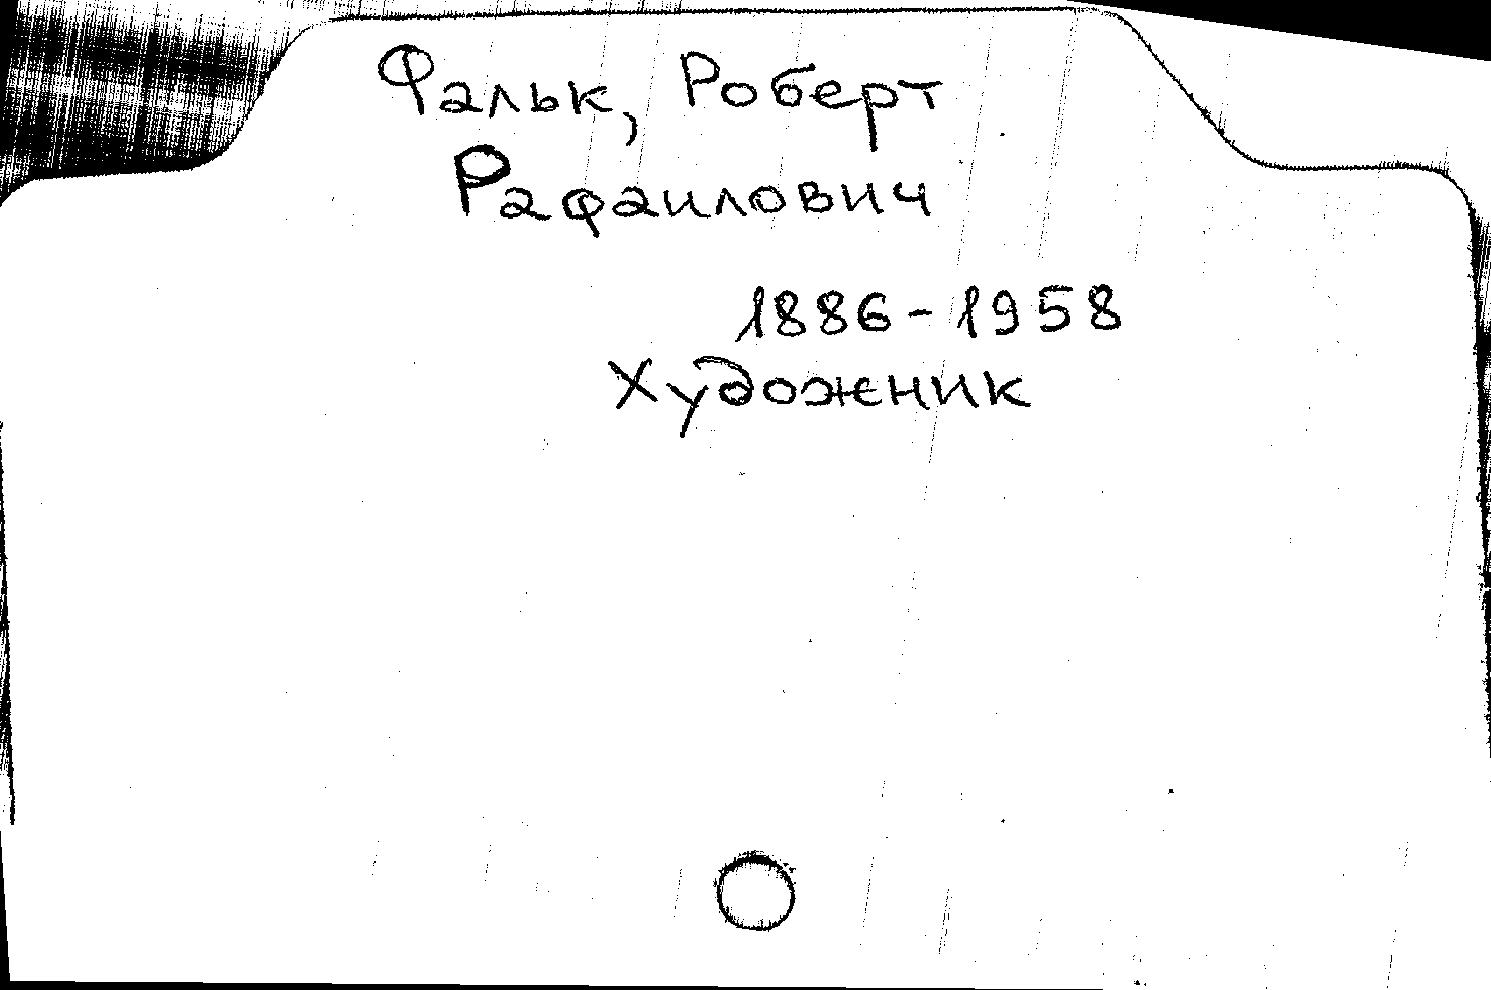 Фальк, Роберт
Рафаилович
1886-1958
Художник